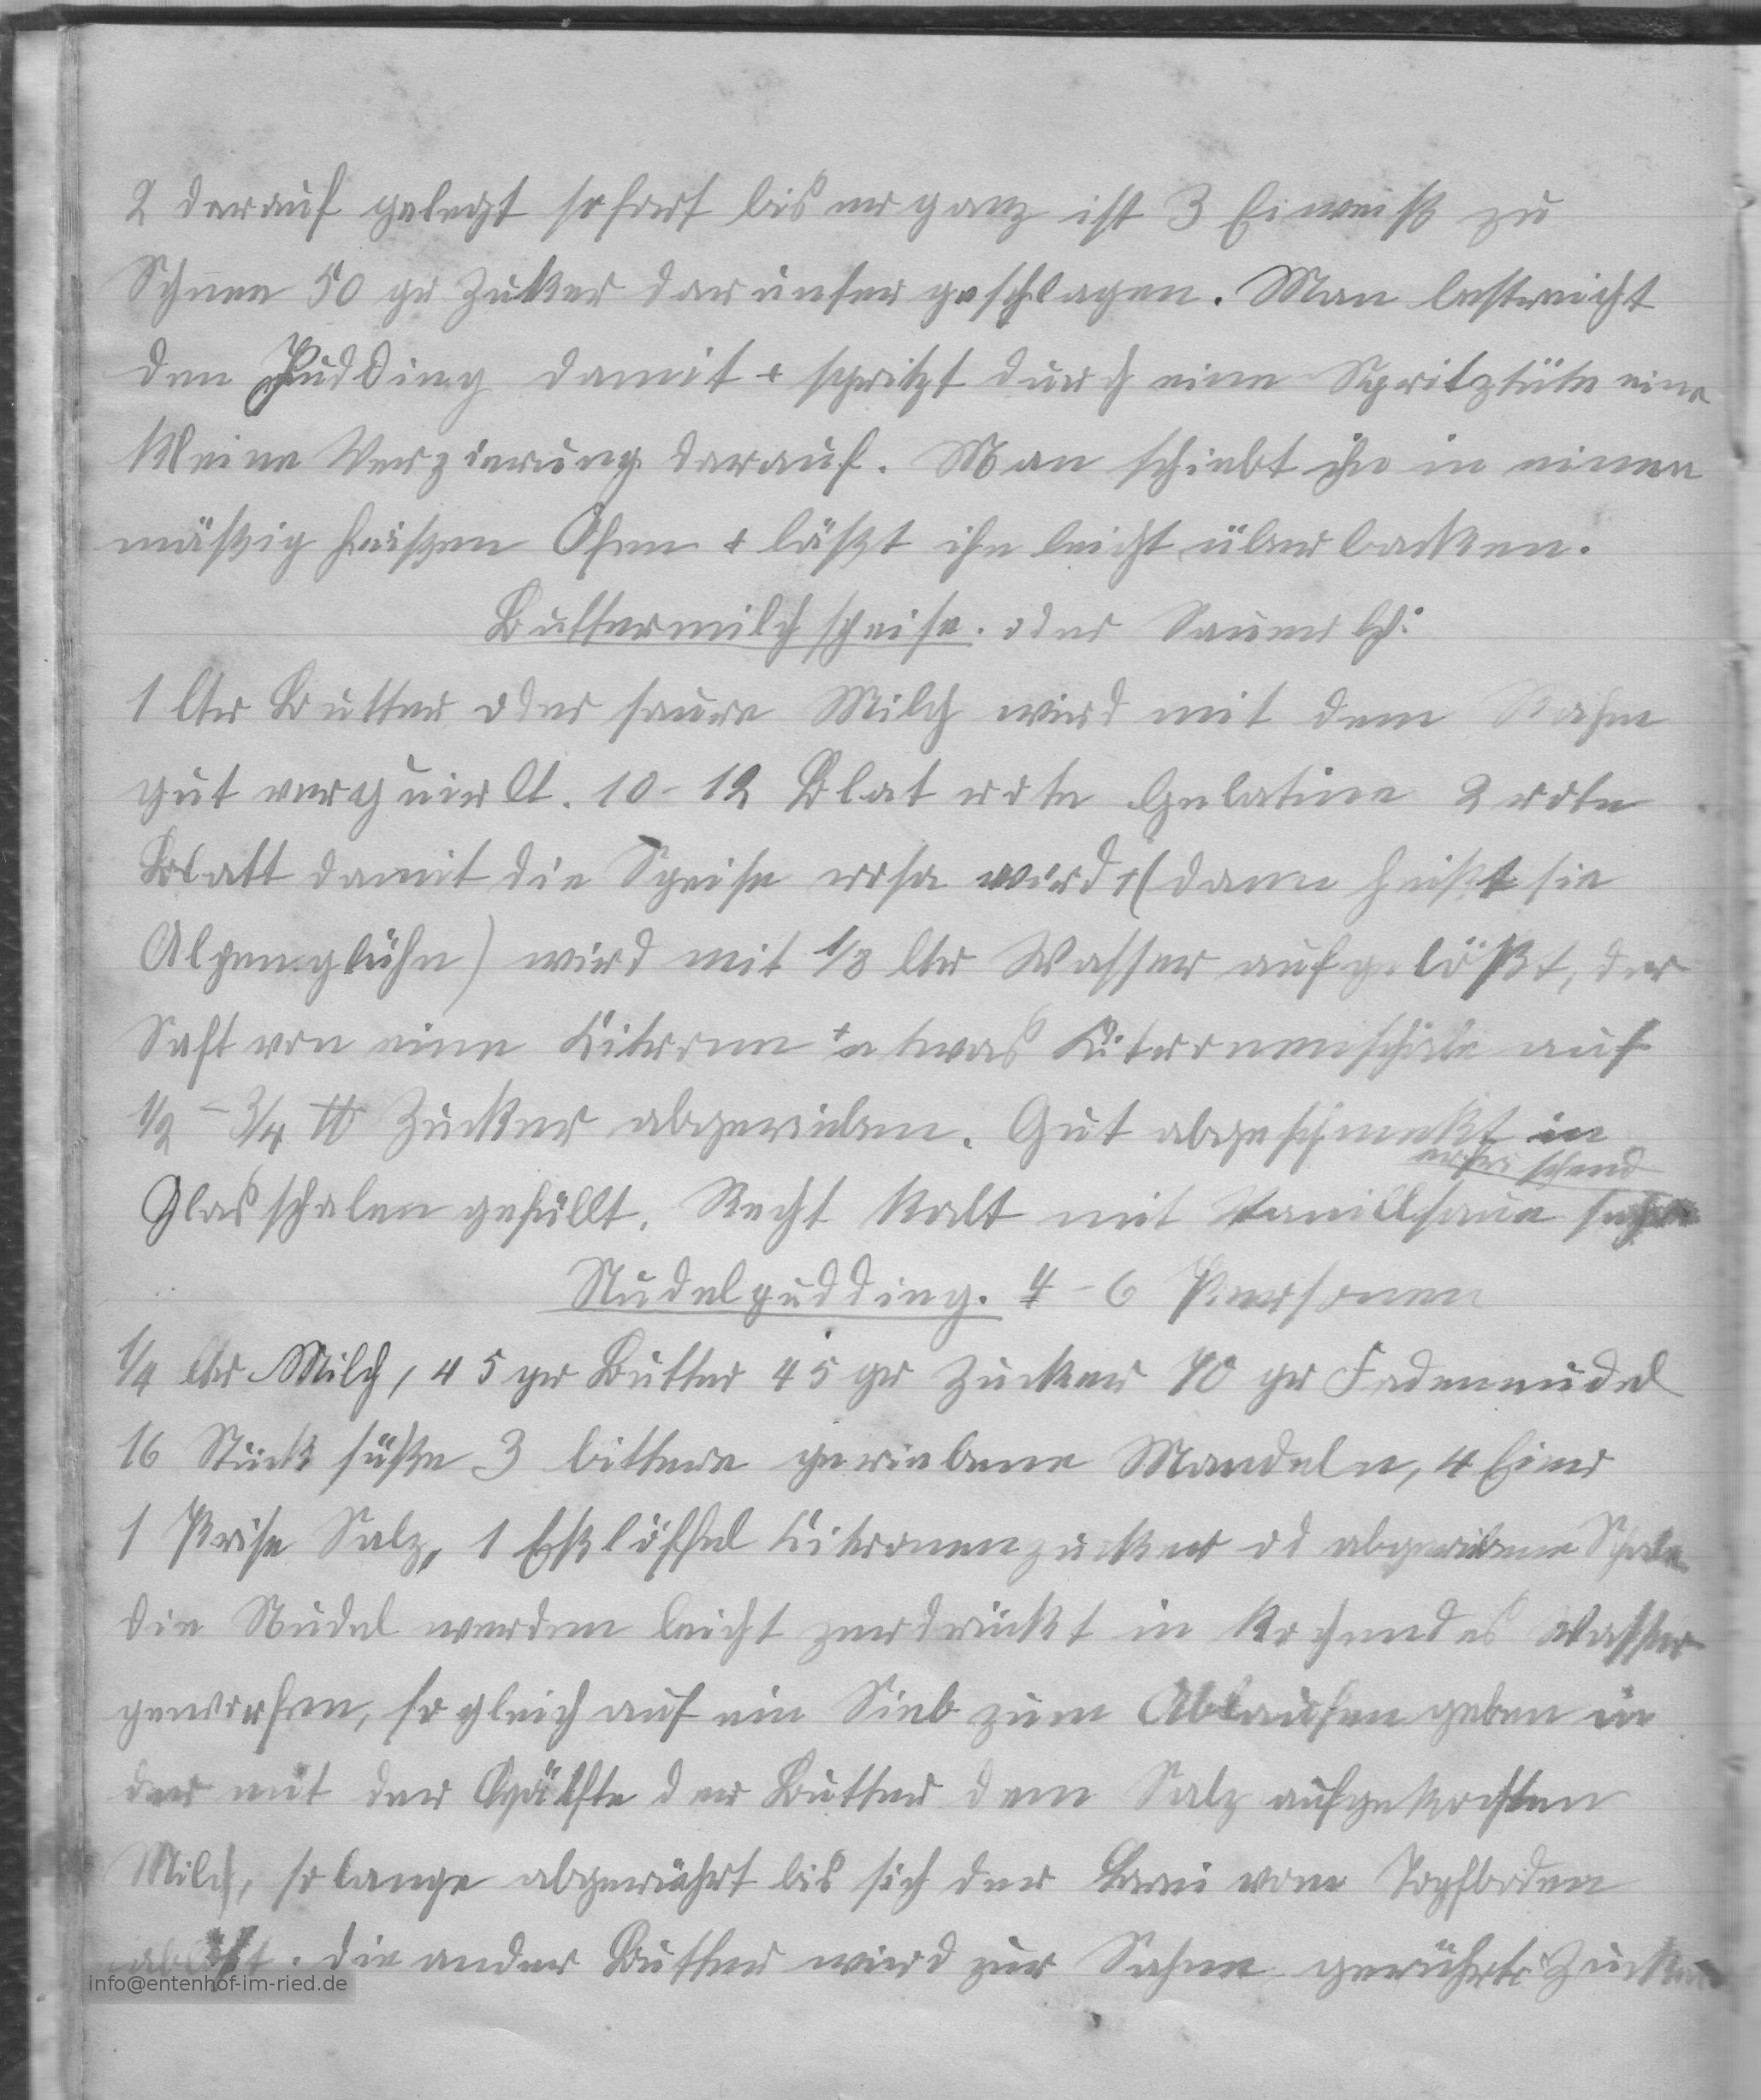 2 darauf gelegt so fort bis er ganz ist 3 Eiweiß zu
Schnee 50 gr Zuker darunter geschlagen. Man bestreicht
den Pudding damit + spritzt durch eine Spritztüte eine
kleine Verzierung darauf. Man schiebt ihn in einen
mäßig heißen Ofen + läßt ihn leicht überbacken.
Buttermilchspeise. oder Sauer
1 ltr Butter oder saure Milch wird mit dem Rahm
gut verquirlt. 10-12 Blat rote Gelatine 2 rote
Blatt damit die Speise rosa wird + (dann heißt sie
Alpenglühn) wird mit 1/8 ltr Wasser aufgelößt, der
Saft von eine Citrone + etwas Citronenschale auf
1/2 - 3/4 ℔ Zucker abgerieben. Gut abgeschmekt in
Glasschalen gefüllt. Recht kalt mit Vanillsauce sehr
erfrischend
Nudelpudding. 4-6 Personen
1/4 ltr Milch, 45 gr Butter 45 gr Zucker 70 gr Fadennudel
16 Stück süße 3 bittere geriebene Mandeln, 4 Eier
1 Prise Salz, 1 Eßlöffel Citronenzucker od abgeriebene Schale
die Nudel werden leicht zerdrückt in kochendes Wasser
geworfen, sogleich auf ein Sieb zum Ablaufen geben in
der mit der Hälfte der Butter dem Salz aufgekochten
Milch, solange abgerührt bis sich der Brei vom Topfboden
ablöst. die ander Butter wird zur Sahne gerührt Zucker
info@entenhof-im-ried.de